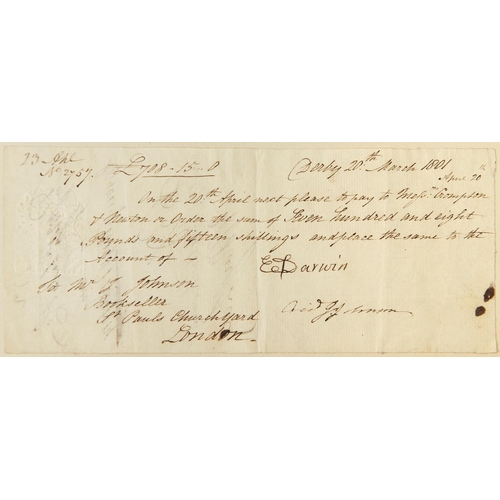 23 Apl
No 2757. £708-15-0 Derby 20th March 1801
April 20th
On the 20th April next please to pay to Messrs Crompton
& Newton or Order the sum of Seven hundred and eight
Pounds and fifteen shillings and place the same to the
Account of —
E Darwin
To Mr J Johnson
Bookseller
St Pauls Church Yard
London
J Johnson